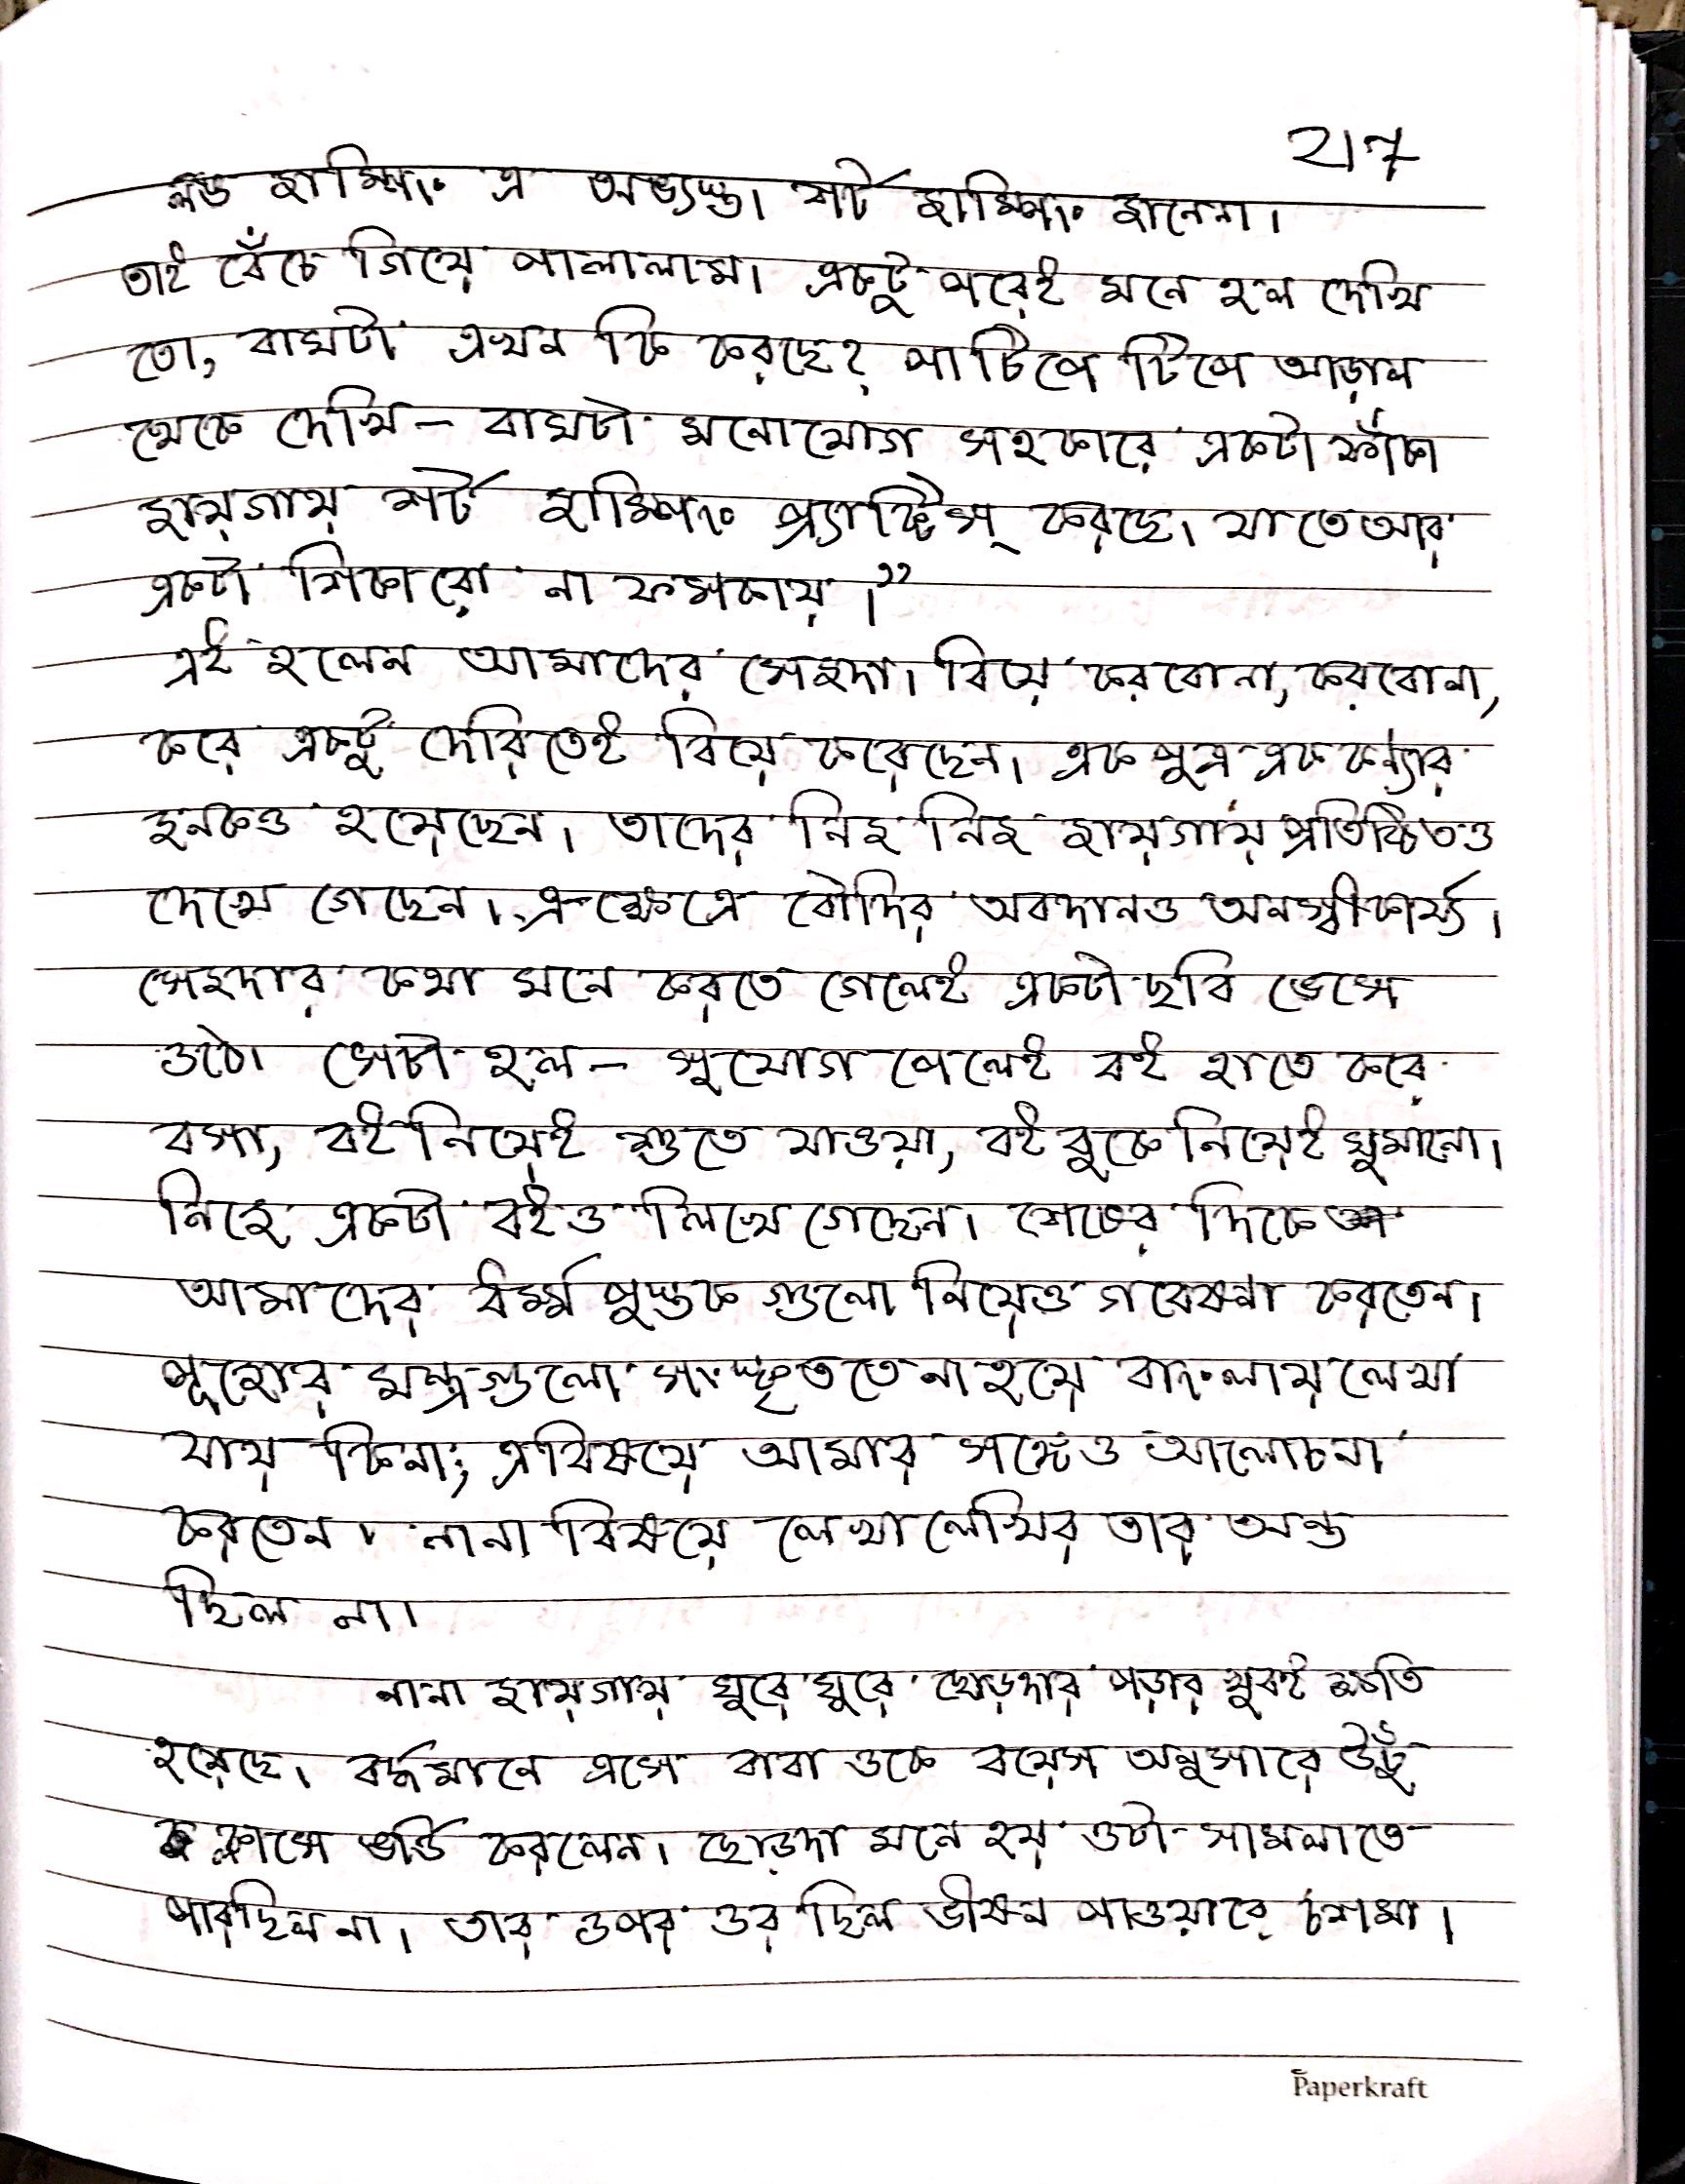 ২/৭
লঙ জাম্পিং এ অভ্যস্ত। শর্ট জাম্পিং জানেনা।
তাই বেঁচে গিয়ে পালালাম। একটু পরেই মনে হল দেখি
তো, বাঘটা এখন কি করছে? পা টিপে টিপে আড়াল
থেকে দেখি – বাঘটা মনোযোগ সহকারে একটা ফাঁকা
জায়গায় শর্ট জাম্পিং প্র্যাক্টিস্ করছে। যাতে আর
একটা শিকারো না ফসকায়।”
এই হলেন আমাদের সেজদা। বিয়ে করবোনা, করবোনা,
করে একটু দেরিতেই বিয়ে করেছেন। এক পুত্র এক কন্যার
জনকও হয়েছেন। তাদের নিজ নিজ জায়গায় প্রতিষ্ঠিতও
দেখে গেছেন। এক্ষেত্রে বৌদির অবদানও অনস্বীকার্য্য।
সেজদার কথা মনে করতে গেলেই একটা ছবি ভেসে
ওঠে। সেটা হল – সুযোগ পেলেই বই হাতে করে
বসা, বই নিয়েই শুতে যাওয়া, বই বুকে নিয়েই ঘুমানো।
নিজে একটা বইও লিখে গেছেন। শেষের দিকে
আমাদের ধর্ম্ম পুস্তক গুলো নিয়েও গবেষনা করতেন।
পূজোর মন্ত্রগুলো সংস্কৃততে না হয়ে বাংলায় লেখা
যায় কিনা; এবিষয়ে আমার সঙ্গেও আলোচনা
করতেন। নানা বিষয়ে লেখালেখির তার অন্ত
ছিল না।
নানা জায়গায় ঘুরে ঘুরে ছোড়দার পড়ার খুবই ক্ষতি
হয়েছে। বর্দ্ধমানে এসে বাবা ওকে বয়েস অনুসারে উঁচু
ক্লাসে ভর্ত্তি করলেন। ছোড়দা মনে হয় ওটা সামলাতে
পারছিল না। তার ওপর ওর ছিল ভীষন পাওয়ারে চশমা।
Paperkraft